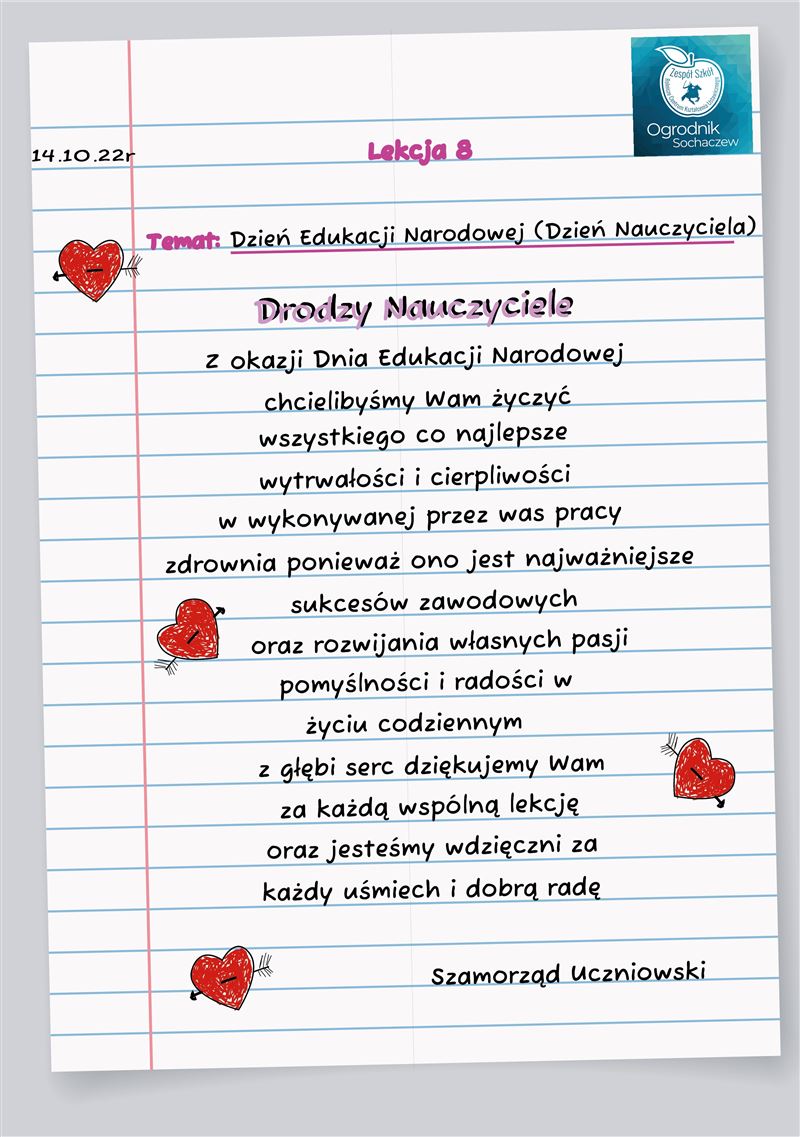 Zespół Szkół
Ogrodnik
Sochaczew
14.10.22r
Lekcja 8
Temat: Dzień Edukacji Narodowej (Dzień Nauczyciela)
Drodzy Nauczyciele
z okazji Dnia Edukacji Narodowej
chcielibyśmy Wam życzyć
wszystkiego co najlepsze
wytrwałości i cierpliwości
w wykonywanej przez was pracy
zdrownia ponieważ ono jest najważniejsze
sukcesów zawodowych
oraz rozwijania własnych pasji
pomyślności i radości w
życiu codziennym
z głębi serc dziękujemy Wam
za każdą wspólną lekcję
oraz jesteśmy wdzięczni za
każdy uśmiech i dobrą radę
Szamorząd Uczniowski